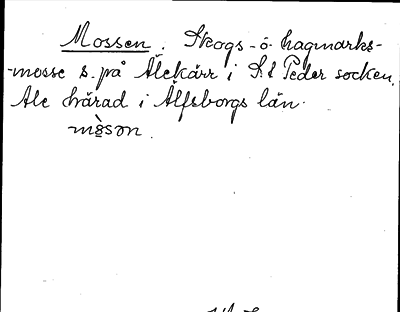 Mossen. Skogs- o. hagmarks-
mosse s. på Älekärr i S:t Peder socken,
Ale härad i Älfsborgs län.
mòson.